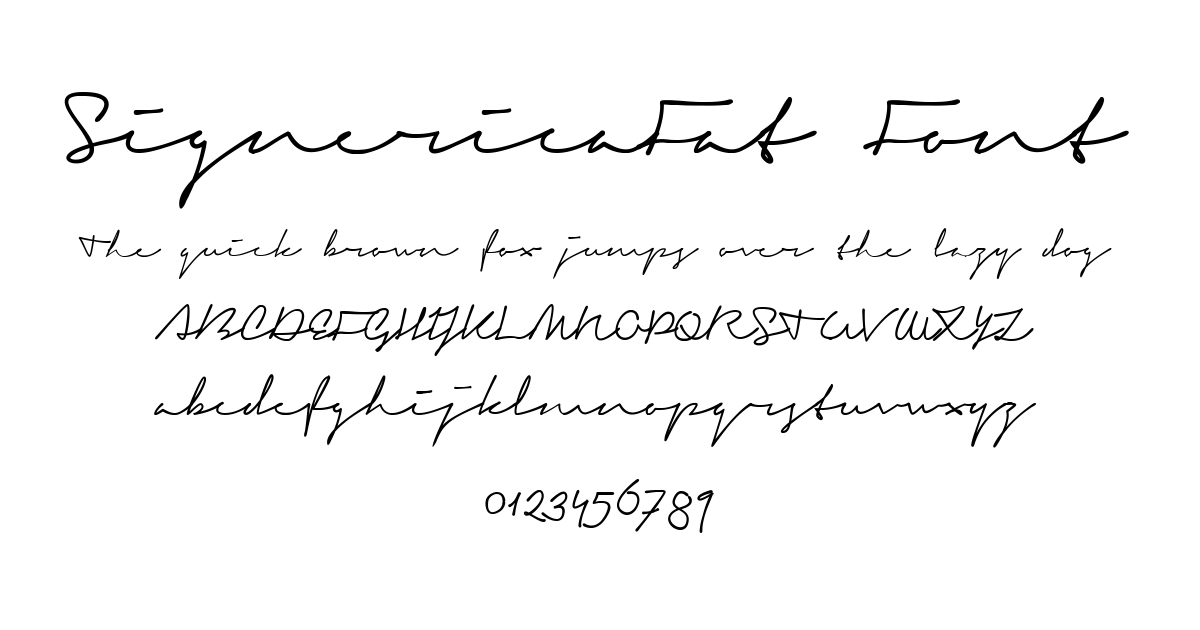 SignericaFat Font
The quick brown fox jumps over the lazy dog
ABCDEFGHIJKLMNOPQRSTUVWXYZ
abcdefghijklmnopqrstuvwxyz
0123456789